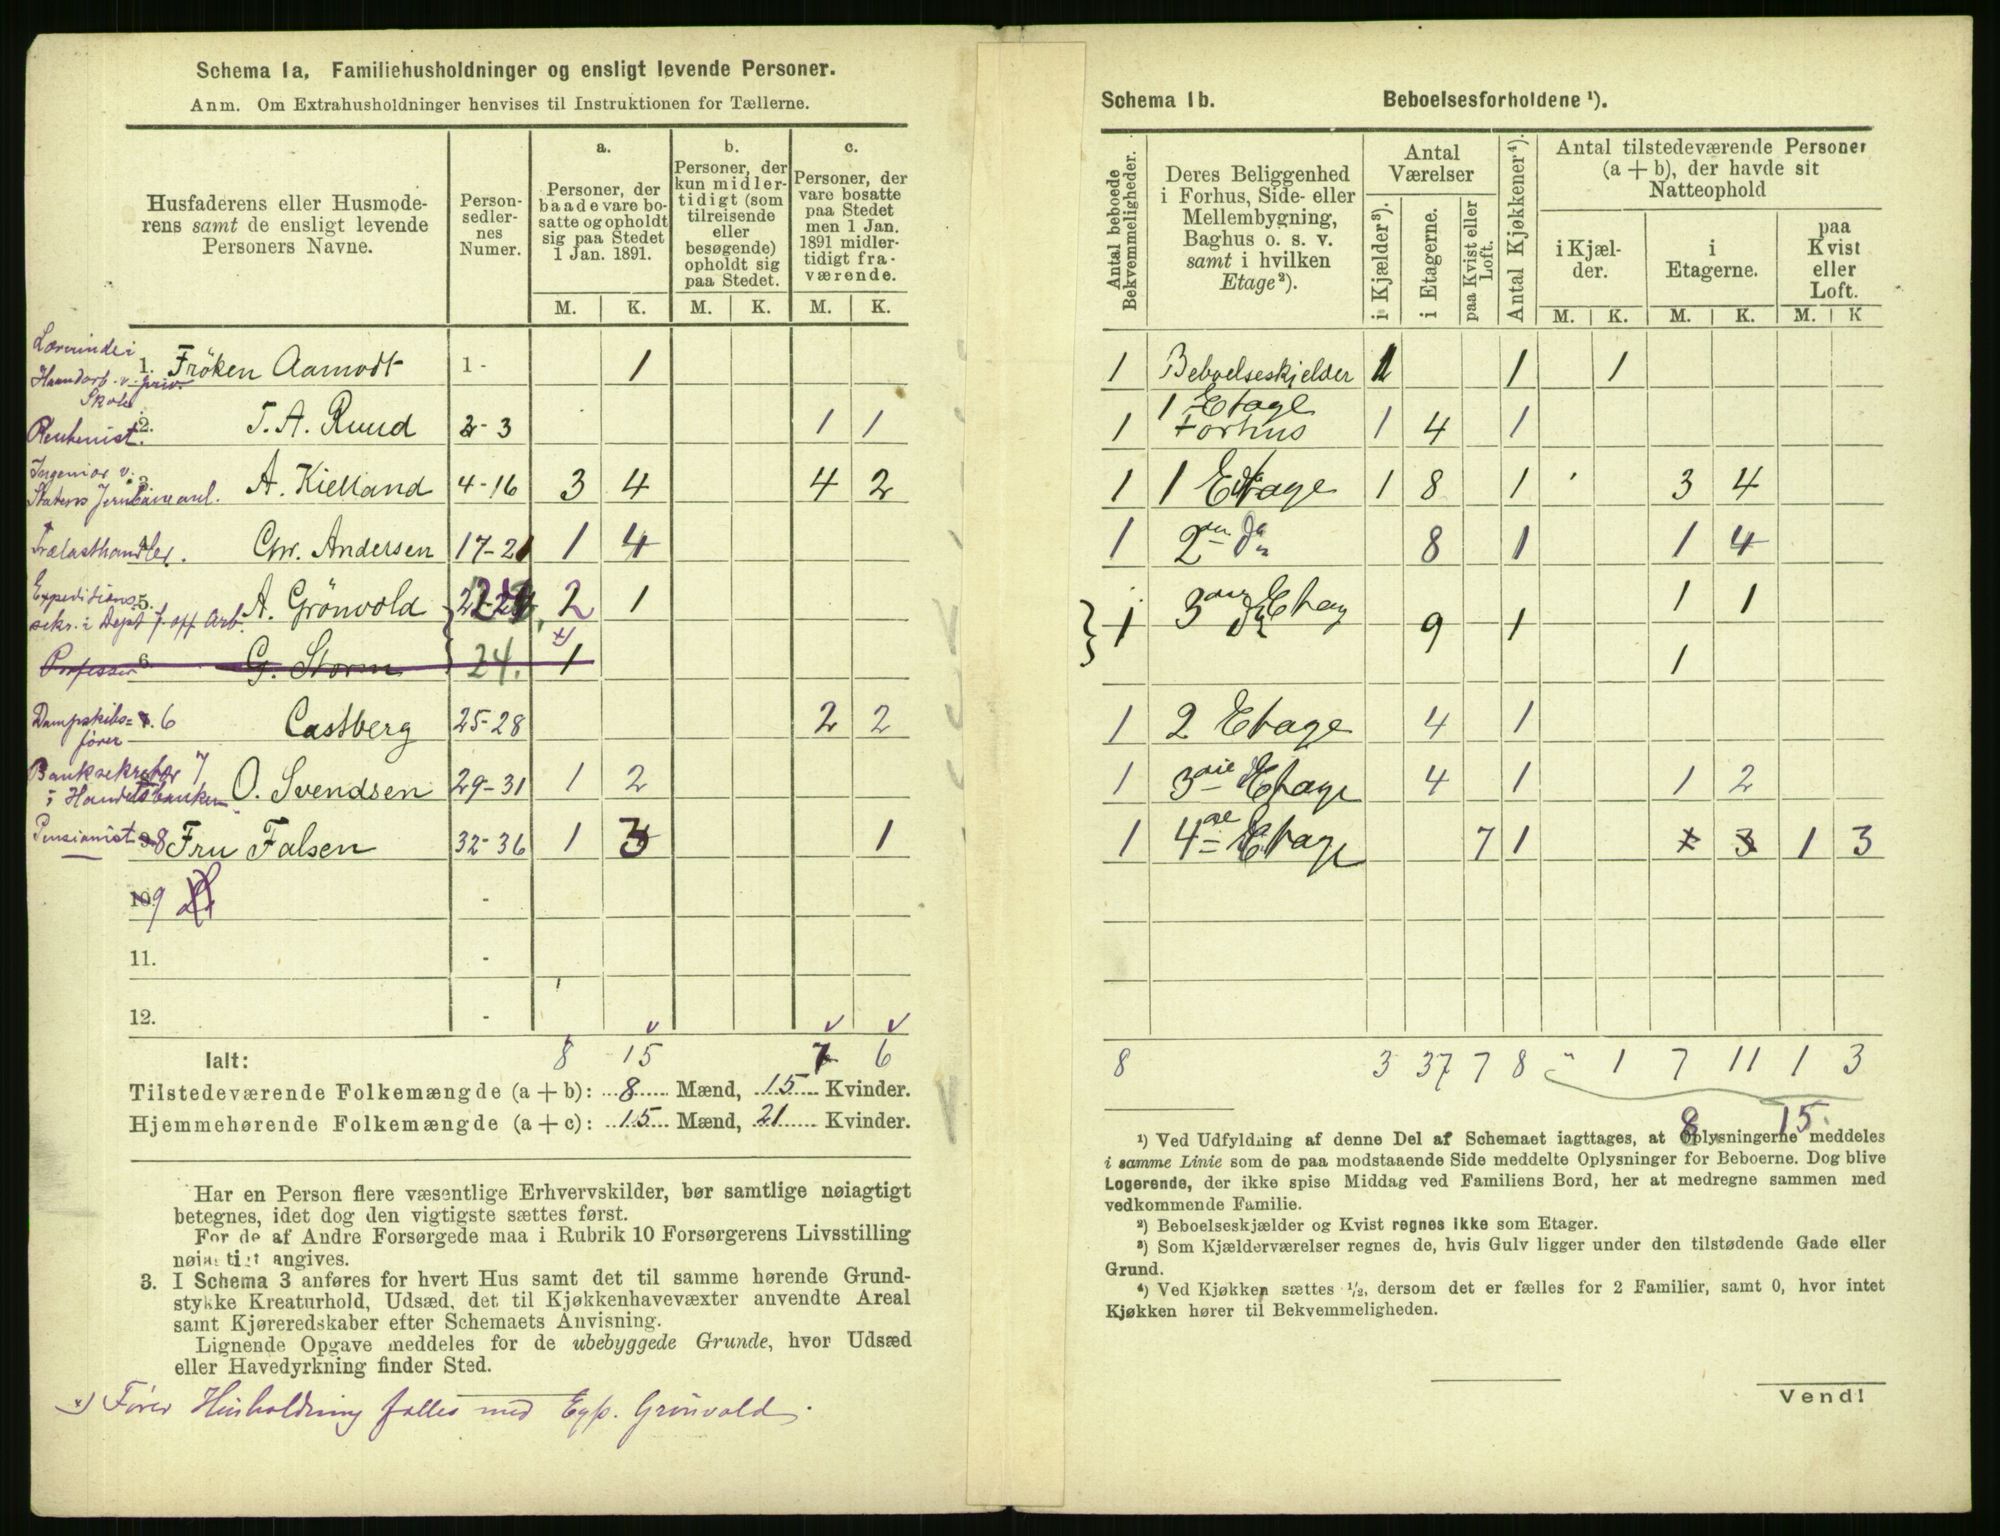 Schema 1a, Familiehusholdninger og ensligt levende Personer.
Anm. Om Extrahusholdninger henvises til Instruktionen for Tællerne.
Husfaderens eller Husmode-
rens samt de ensligt levende
Personers Navne.
Person-
sedler-
nes
Numer.
a.
Personer, der
baade vare bo-
satte og opholdt
sig paa Stedet
1 Jan. 1891.
b.
Personer, der
kun midler-
tidigt (som
tilreisende
eller
besøgende)
opholdt sig
paa Stedet.
c.
Personer, der
vare bosatte
paa Stedet
men 1 Jan.
1891 midler-
tidigt fra-
værende.
M. K. M. K. M. K.
Lærerinde i
Haandarb. v. priv.
Skole
1. Fröken Aamodt 1 - 1
Rentenist. 2. T. A. Ruud 2-3 1 1
Ingeniør v.
Statens Jernbaneanl. 3. A. Kielland 4-16 3 4 4 2
Trælasthandler. Chr. Andersen 17-21 1 4
Expeditions
sekr. i Dept f. off Arb. 5. A. Grönvold 22-24 2 1
Professor 6. G. Storm 24. 1
Dampskibs=
fører 6 Castberg 25-28 2 2
Banksekretær 7
i Handelsbanken O. Svendsen 29-31 1 2
Pensionist 8 Fru Falsen 32-36 1 3 1
10. 9 -
11. -
12. -
Ialt: 8 15 7 6
Tilstedeværende Folkemængde (a + b): 8 Mænd, 15 Kvinder.
Hjemmehørende Folkemængde (a + c): 15 Mænd, 21 Kvinder.
Har en Person flere væsentlige Erhvervskilder, bør samtlige nøiagtigt
betegnes, idet dog den vigtigste sættes først.
For de af Andre Forsørgede maa i Rubrik 10 Forsørgerens Livsstilling
nøiagtigt angives.
3. I Schema 3 anføres for hvert Hus samt det til samme hørende Grund-
stykke Kreaturhold, Udsæd, det til Kjøkkenhavevæxter anvendte Areal
samt Kjøreredskaber efter Schemaets Anvisning.
Lignende Opgave meddeles for de ubebyggede Grunde, hvor Udsæd
eller Havedyrkning finder Sted.
x) Fører Husholdning fælles med Exp. Grönvold.
Schema 1b. Beboelsesforholdene ¹).
Antal beboede
Bekvemmeligheder.
Deres Beliggenhed
i Forhus, Side- eller
Mellembygning,
Baghus o. s. v.
samt i hvilken
Etage²).
Antal
Værelser
i Kjælder³).
i Etagerne.
paa Kvist eller
Loft.
Antal Kjøkkener⁴).
Antal tilstedeværende Personer
(a + b), der havde sit
Natteophold
i Kjæl-
der.
i
Etagerne.
paa
Kvist
eller
Loft.
M. K. M. K. M. K
1 Beboelseskjelder 1 1 1
1 1 Etage
Forhus 1 4 1
1 1 Etage 1 8 1 3 4
1 2den do 8 1 1 4
1 3die Etag 9 1 1 1
1
1 2 Etage 4 1
1 3die Etage 4 1 1 2
1 4de Etage 7 1 1 3 1 3
8 3 37 7 8 - 1 7 11 1 3
8 15.
¹) Ved Udfyldning af denne Del af Schemaet iagttages, at Oplysningerne meddeles
i samme Linie som de paa modstaaende Side meddelte Oplysninger for Beboerne. Dog blive
Logerende, der ikke spise Middag ved Familiens Bord, her at medregne sammen med
vedkommende Familie.
²) Beboelseskjælder og Kvist regnes ikke som Etager.
³) Som Kjælderværelser regnes de, hvis Gulv ligger under den tilstødende Gade eller
Grund.
⁴) Ved Kjøkken sættes ½, dersom det er fælles for 2 Familier, samt 0, hvor intet
Kjøkken hører til Bekvemmeligheden.
Vend!